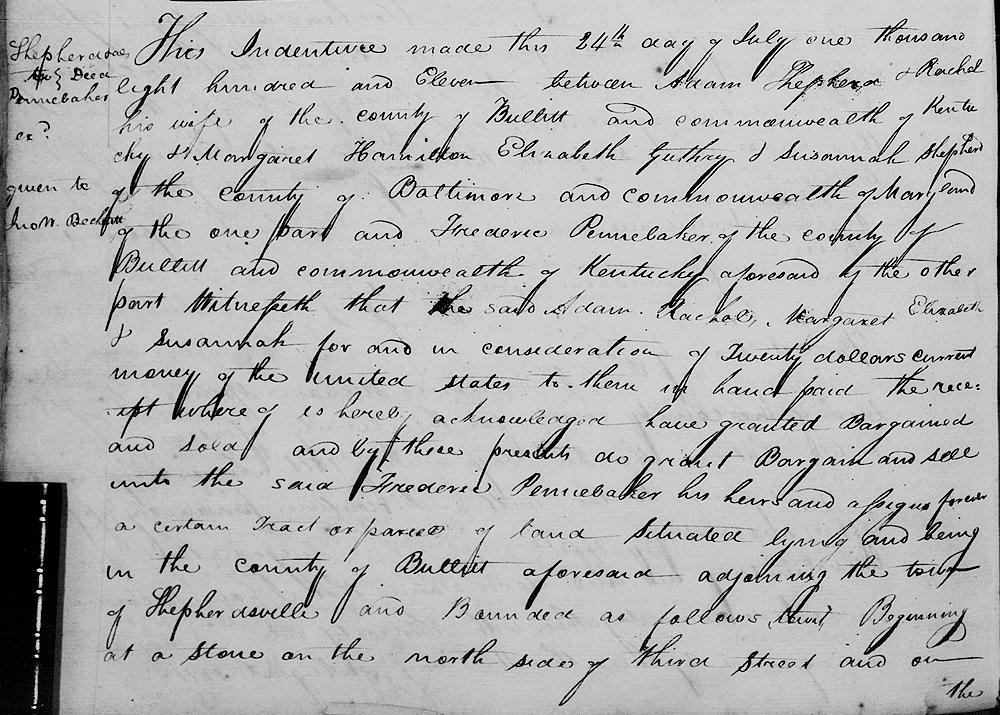 Shepherd &c
to } Deed
Pennebaker
exd
given to
Jno W. Beckett
This Indenture made this 24th day of July one thousand
eight hundred and Eleven between Adam Shepherd & Rachel
his wife of the county of Bullitt and commonwealth of Kentu
cky & Margaret Hamilton Elizabeth Guthry & Susannah Shepherd
of the county of Baltimore and commonwealth of Maryland
of the one part and Frederic Pennebaker of the county of
Bullitt and commonwealth of Kentucky aforesaid of the other
part Witnesseth that the said Adam Rachel, Margaret Elizabeth
& Susannah for and in consideration of Twenty dollars current
money of the united states to them in hand paid the rece=
ipt where of is hereby acknowledged have granted Bargained
and sold and by these presents do grant Bargain and sell
unto the said Frederic Pennebaker his heirs and assigns forever
a certain Tract or parcel of land situated lying and being
in the county of Bullitt aforesaid adjoining the town
of Shepherdsville and Bounded as follows towit Beginning
at a stone on the north side of third street and on
the